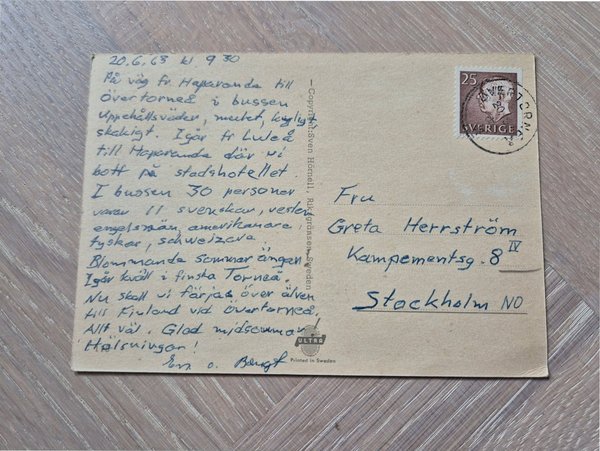 20.6.63 kl 9 30
På väg fr. Haparanda till
övertorneå i bussen
Uppehållsväder, mulet, kyligt
skakigt. Igår fr Luleå
till Haparanda där vi
bott på stadshotellet.
I bussen 30 personer
varav 11 svenskar, resten
engelsmän, amerikanare
tyskar, schweizare.
Blommande sommarängar
Igår kväll i finska Torneå.
Nu skall vi färjas över älven
till Finland vid övertorneå.
Allt väl. Glad midsommar
Hälsningar!
o. Bengt
— Copyright: Sven Hörnell, Riksgränsen, Sweden
ULTRA
Printed in Sweden
25
SVERIGE
Fru
Greta Herrström
Kampementsg. 8 IV
Stockholm NO